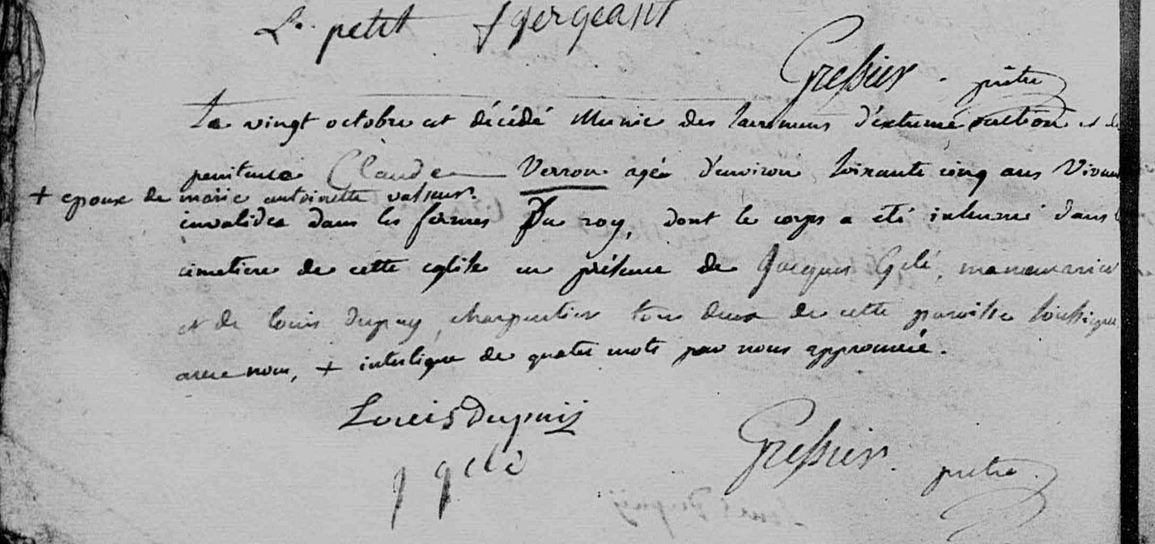 Le petit Sgergeant
Gressier prêtre
Le vingt octobre est décédé Munie des sacremens d'extreme onction et de
penitence Claude Verron agée d'environ soixante cinq ans Vivant
+ epoux de marie antoinette vasseur.
invalides dans les fermes Du roy, dont le corps a été inhumé dans
cimetiere de cette eglise en présence de Jacques Gelé, manouvrier
et de louis dupuy, charpentier tous deux de cette paroisse soussigné
avec nous, + interligne de quatre mots par nous approuvée.
Louis Dupuis
j gelé
Gressier prêtre